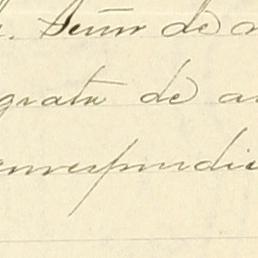 Señor de
grata de a
orrespondie